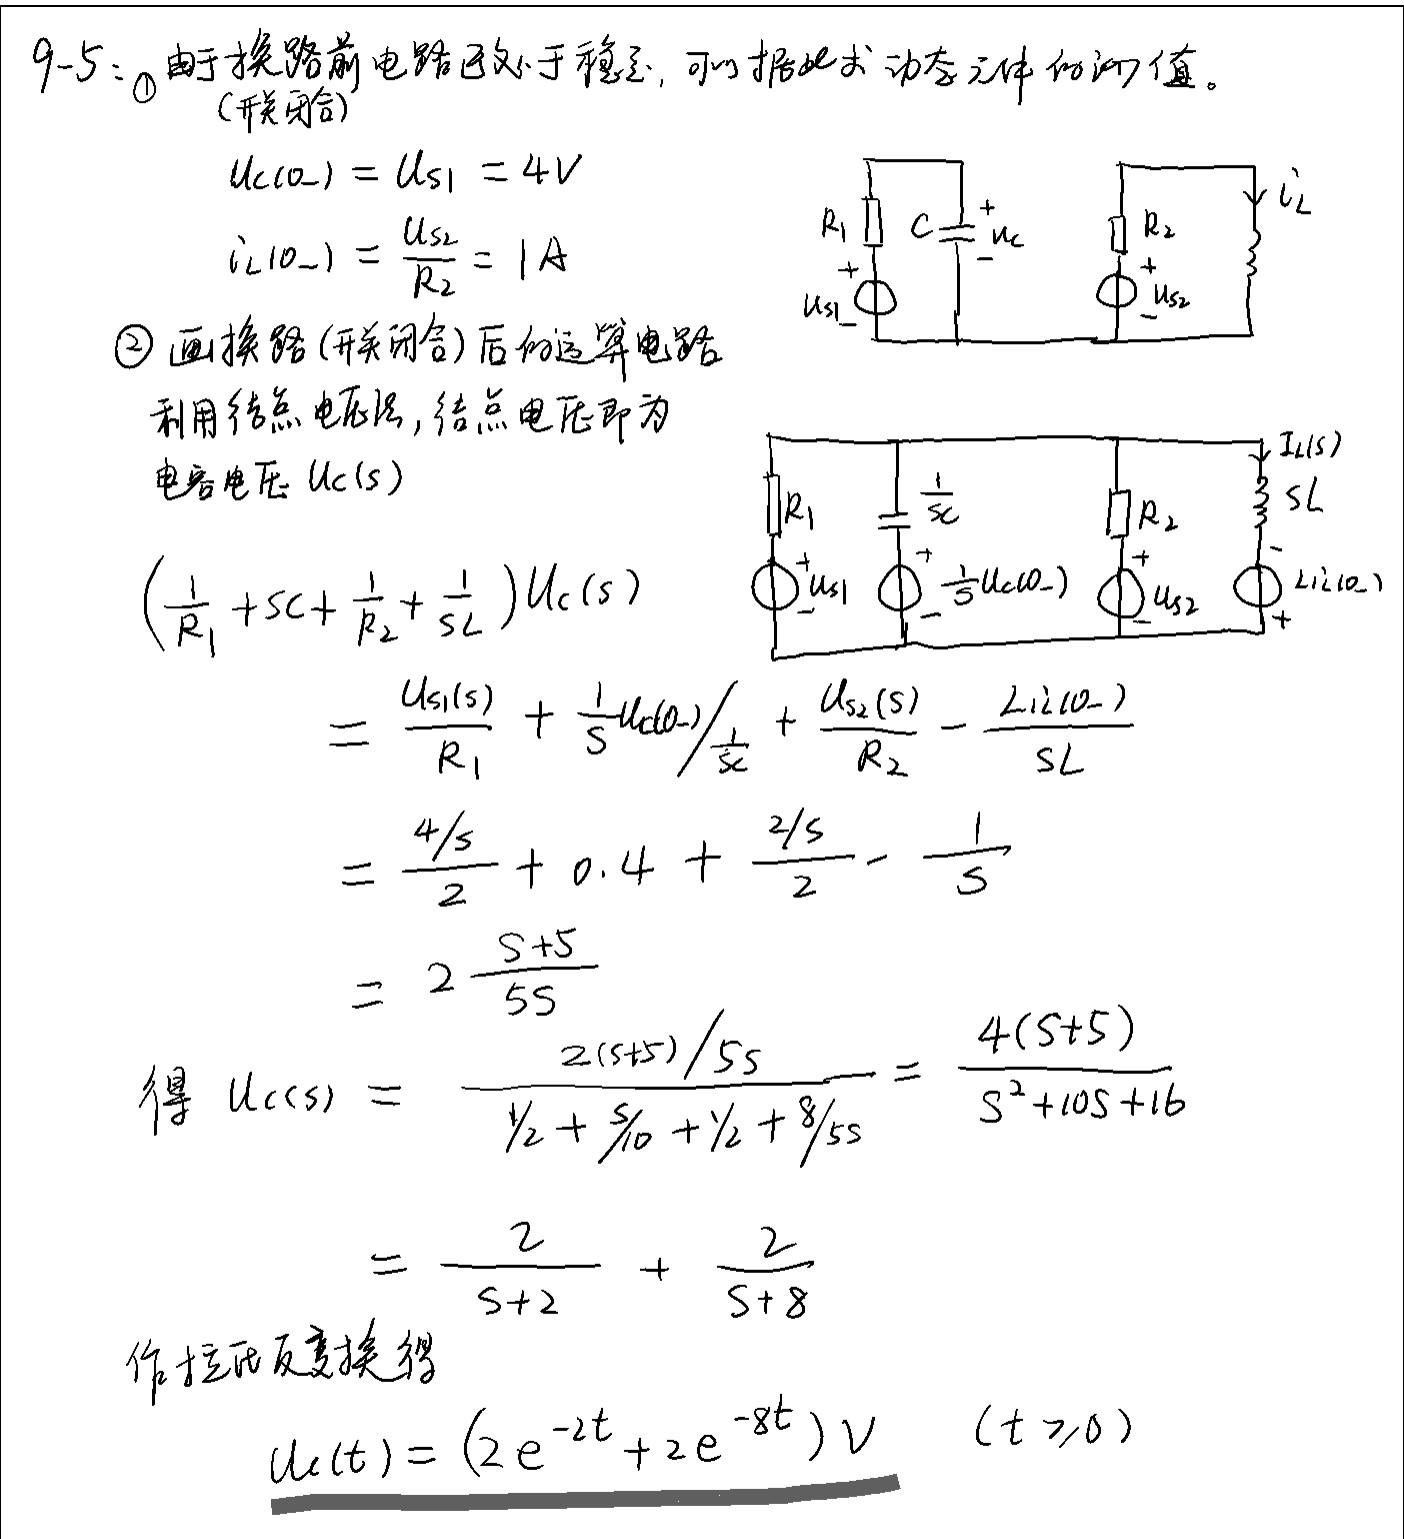 9-5: ① 由于换路前电路已处于稳态, 可以据此求动态元件的初值。
(开关闭合)
Uc(0_) = Us1 = 4V
iL(0_) = Us2/R2 = 1A
R1 C + uc - + Us1 -
R2 + Us2 - iL
② 画换路(开关闭合)后的运算电路
利用结点电压法, 结点电压即为
电容电压 Uc(s)
R1 + Us1 - 1/sC + 1/s Uc(0_) - R2 + Us2 - IL(s) sL - LiL(0_) +
(1/R1 + SC + 1/R2 + 1/SL) Uc(s)
= Us1(s)/R1 + 1/S Uc(0_) / 1/sC + Us2(s)/R2 - LiL(0_)/SL
= 4/s / 2 + 0.4 + 2/s / 2 - 1/S
= 2 S+5 / 5S
得 Uc(s) = 2(s+5)/5s / (1/2 + S/10 + 1/2 + 8/5S) = 4(S+5) / S²+10S+16
= 2/S+2 + 2/S+8
作拉氏反变换得
Uc(t) = (2e^-2t + 2e^-8t) V (t≥0)